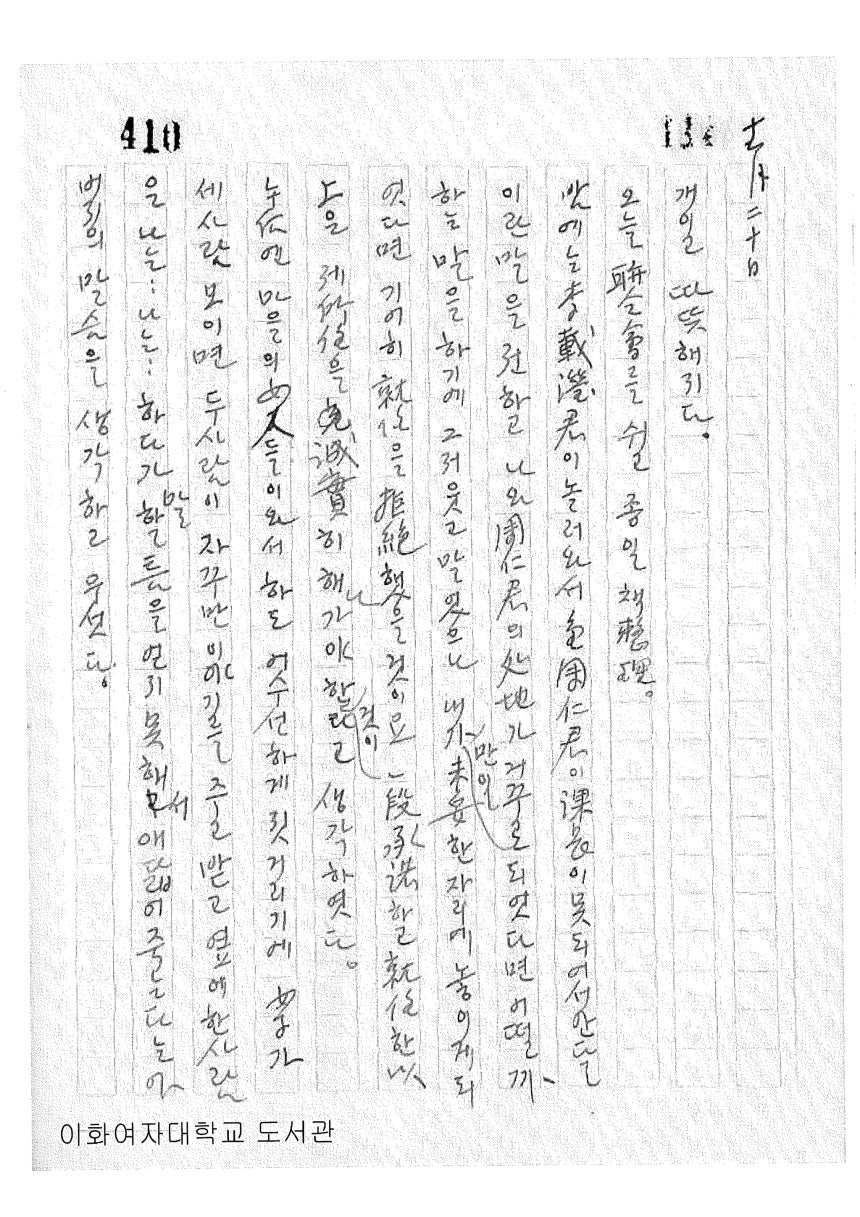 410
134
十一月二十日
개일 따뜻해지다.
오늘 聯合會를 쉴 종일 책整理.
밤에는 李載瀅君이 놀러와서 金周仁君이 課長이 못되어서 안달
이란 말을 전하고 나와 周仁君의 处地가 거꾸로 되엿다면 어떨까、
하는 말을 하기에 그저 웃고 말엇으나 내가 만일 未安한 자리에 놓이게되
엿다면 기어히 就任을 拒絶했을 것이요 一段 承諾하고 就任한 以
上은 責任을 誠實히 해나가야 할 것이라고 생각하엿다.
눈 마을의 女人들이 와서 하도 어수선하게 짓거리기에 女子가
세사람 모이면 두사람이 자꾸만 이야기를 주고 받고 옆에 한사람
은 나는… 나는… 하다가 말할 틈을 얻지 못해서 애닯어 죽는다는 아
버지의 말슴을 생각하고 우섯다.
이화여자대학교 도서관